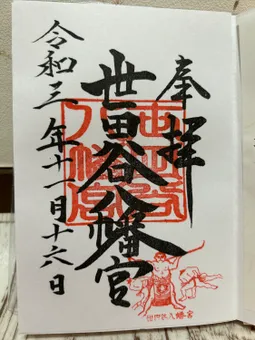 奉拝
世田谷八幡宮
令和三年十一月十六日
世田谷八幡宮
世田谷八幡宮